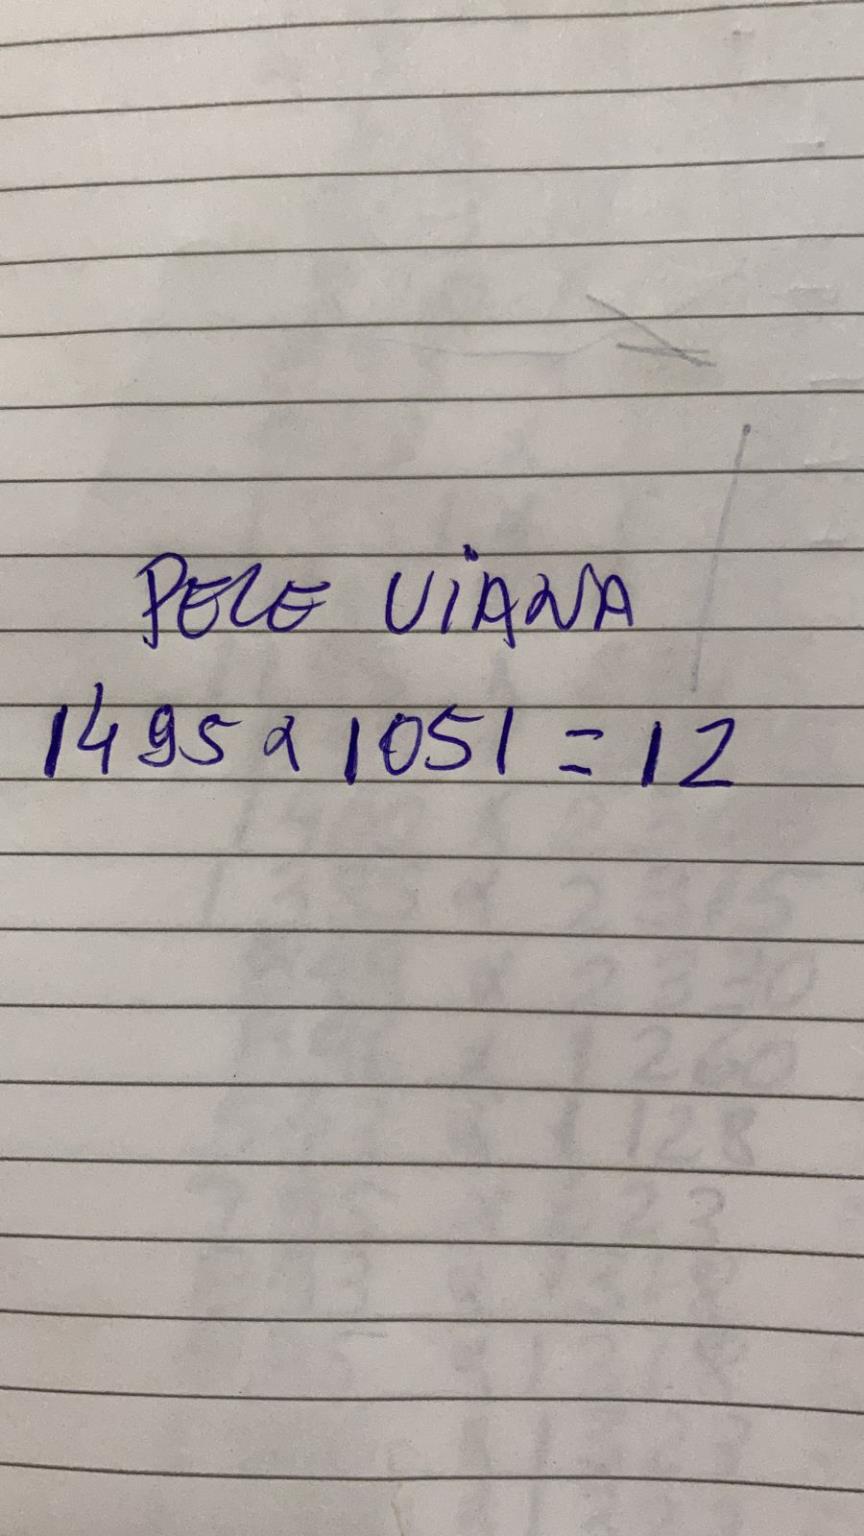 PELE VIANA
1495 x 1051 = 12